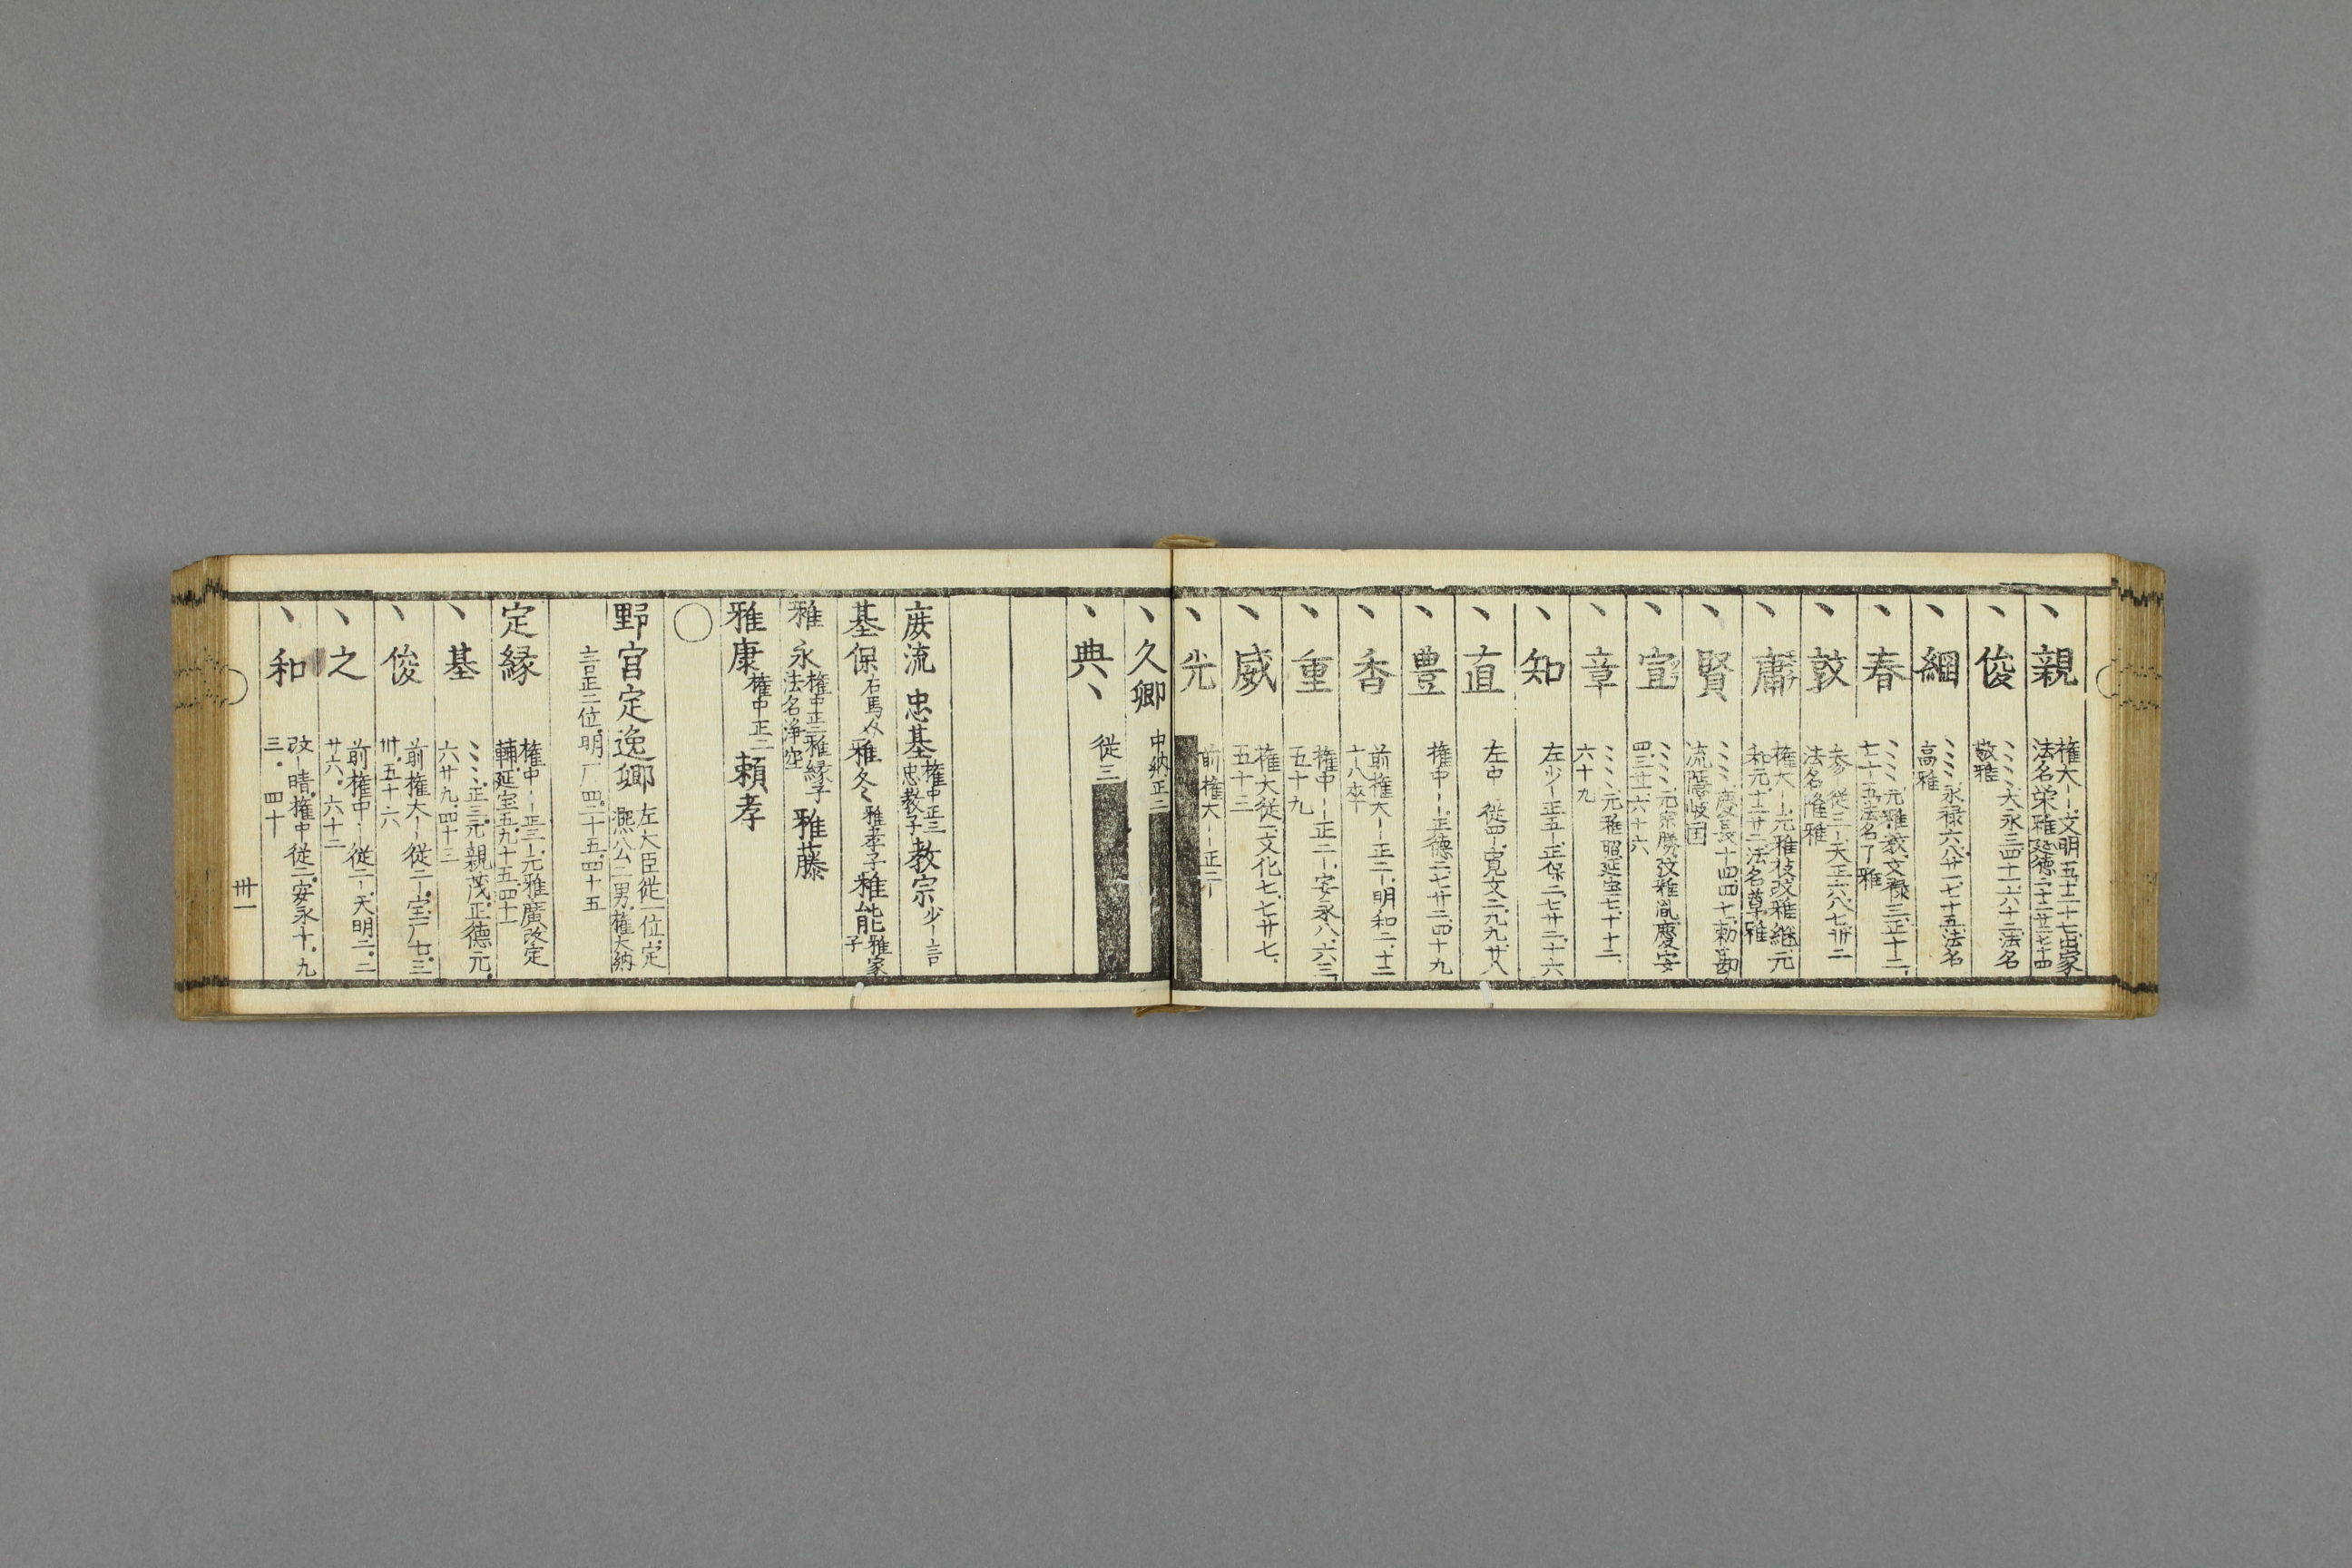 丶親 権大ー、文明五十二十七出家
法名栄雅延徳二十二廿二七十四
丶俊 ミミミ大永三四十一六十二法名
敬雅
丶綱 ミミミ永禄六八廿一、七十五法名
高雅
丶春 ミミミ元雅教、文禄三正十二、
六十五法名了雅
丶敦 参ー従三ー天正六八七卅二
法名惟雅
丶肅 権大ーー元雅枝改雅継元
和元十一廿二法名尊雅
丶賢 ミミミ慶長十四四七勅勘
流隱岐囯
丶宜 ミミミ元宗勝改雅胤慶安
四三廿一六十六
丶章 ミミミ元雅昭延宝七十十二、
六十九
丶知 左少ー正五ー正保二七廿二十六
丶直 左中 従四ー寛文二九九廿八
丶豊 権中ーー正徳二七廿二四十九
丶香 前権大ー正二ー明和二十二
十八卒
丶重 権中ーー正二ー安永八、六三
五十九
丶威 権大従一文化七七廿七、
五十三
丶光 前権大ー正二ー
丶久卿 中納正二
丶典丶 従三
庶流 忠基 権中正三忠教子 教宗 少ー言
基保 右馬 雅冬 雅孝子 雅能 雅家子
雅永 権中正三雅縁子法名浄空 雅藤
雅康 権中正二 頼孝
○
野宮定逸卿 左大臣従一位定
凞公二男権大納
言正二位明厂四二十五四十五
定縁 権中ーー正三ー元雅廣改定
輔延宝五九十五四十一
丶基 ミミミ正三元親茂正徳元
六廿九四十三
丶俊 前権大ー従二ー宝厂七三
卅五十六
丶之 前権中ー従二ー天明二二
廿六六十二
丶和 改ー晴権中従二安永十九
三四十
卅一